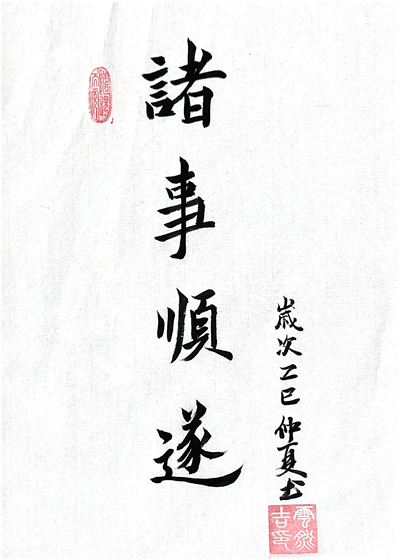 諸事順遂
歲次乙巳仲夏書